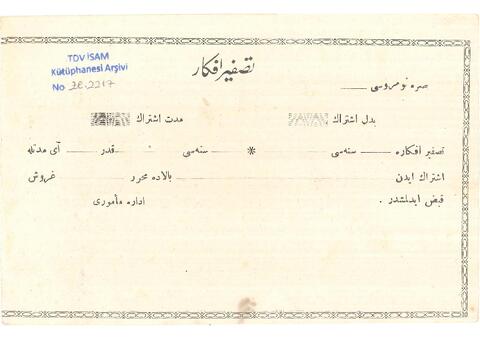 TDV İSAM
Kütüphanesi Arşivi
No 2E.2217
تصفیر افكار
صره نومروسی
بدل اشتراك
مدت اشتراك
تصفیر افكاره سنه‌سی * سنه‌سی قدر آی مدتله
اشتراك ایدن بالاده محرر غروش
قبض ایدلمشدر .
اداره مأموری